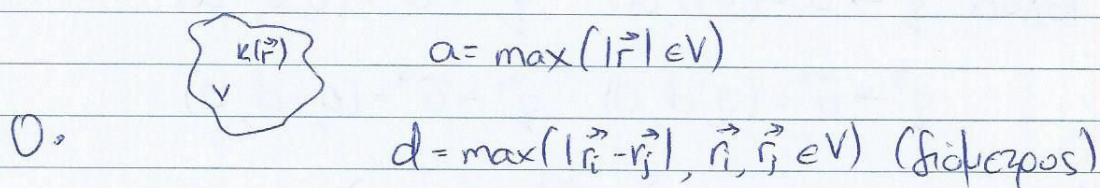 k(r⃗)
a = max(|r⃗| ∈ V)
V
O.
d = max(|r⃗ᵢ - r⃗ⱼ|, r⃗ᵢ, r⃗ⱼ ∈ V) (διάμετρος)